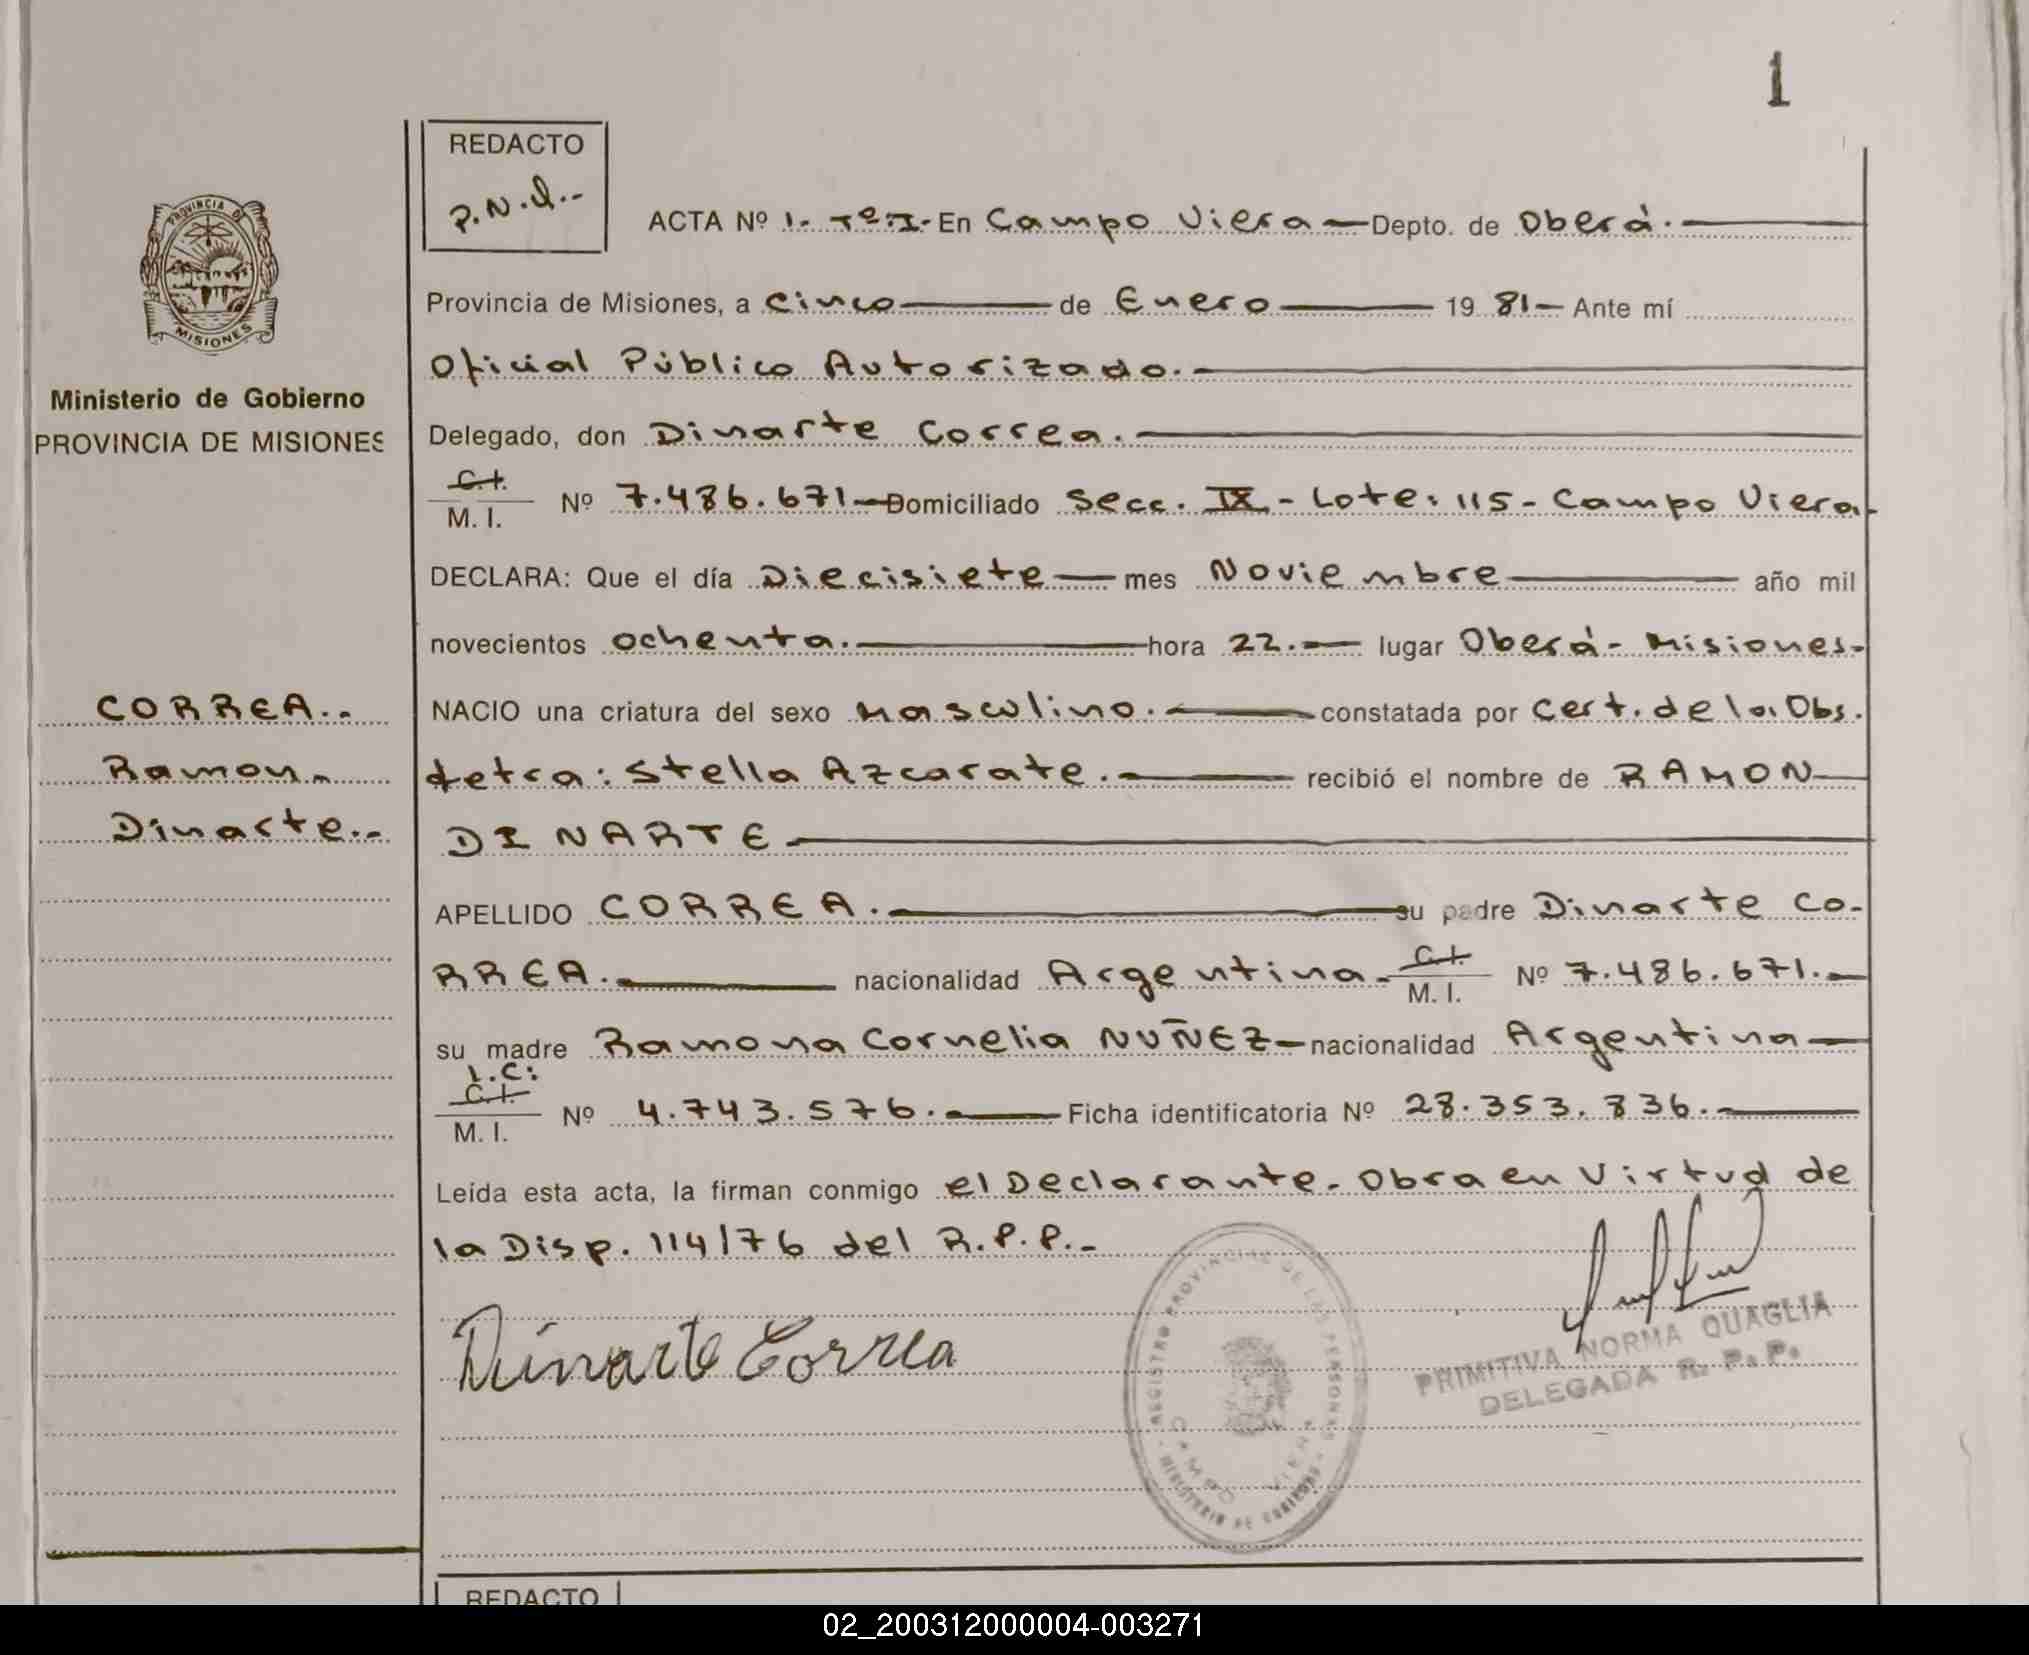 1
REDACTO
P.N.Q.-
PROVINCIA DE
MISIONES
Ministerio de Gobierno
PROVINCIA DE MISIONES
CORREA.-
Ramon.
Dinarte.-
ACTA Nº 1.- Tº.I.- En Campo Viera — Depto. de Oberá.
Provincia de Misiones, a Cinco de Enero 19 81 — Ante mí
Oficial Público Autorizado.
Delegado, don Dinarte Correa.
C.I.
M. I. Nº 7.486.671 — Domiciliado Secc. IX - Lote: 115 - Campo Viera.
DECLARA: Que el día Diecisiete — mes Noviembre año mil
novecientos ochenta. hora 22. — lugar Oberá - Misiones-
NACIO una criatura del sexo Masculino. constatada por Cert. de la Obs.
tetra: Stella Azcarate. recibió el nombre de RAMON
DINARTE
APELLIDO CORREA. su padre Dinarte CO-
RREA. nacionalidad Argentina - C.I.
M. I. Nº 7.486.671.
su madre Ramona Cornelia NUÑEZ — nacionalidad Argentina
L.C:
C.I.
M. I. Nº 4.743.576. Ficha identificatoria Nº 28.353.836.
Leída esta acta, la firman conmigo el Declarante. Obra en Virtud de
la Disp. 114/76 del R.P.P.-
Dinarte Correa
REGISTRO PROVINCIAL DE LAS PERSONAS
CAMPO VIERA
MINISTERIO DE GOBIERNO
PRIMITIVA NORMA QUAGLIA
DELEGADA R. P. P.
REDACTO
02_200312000004-003271